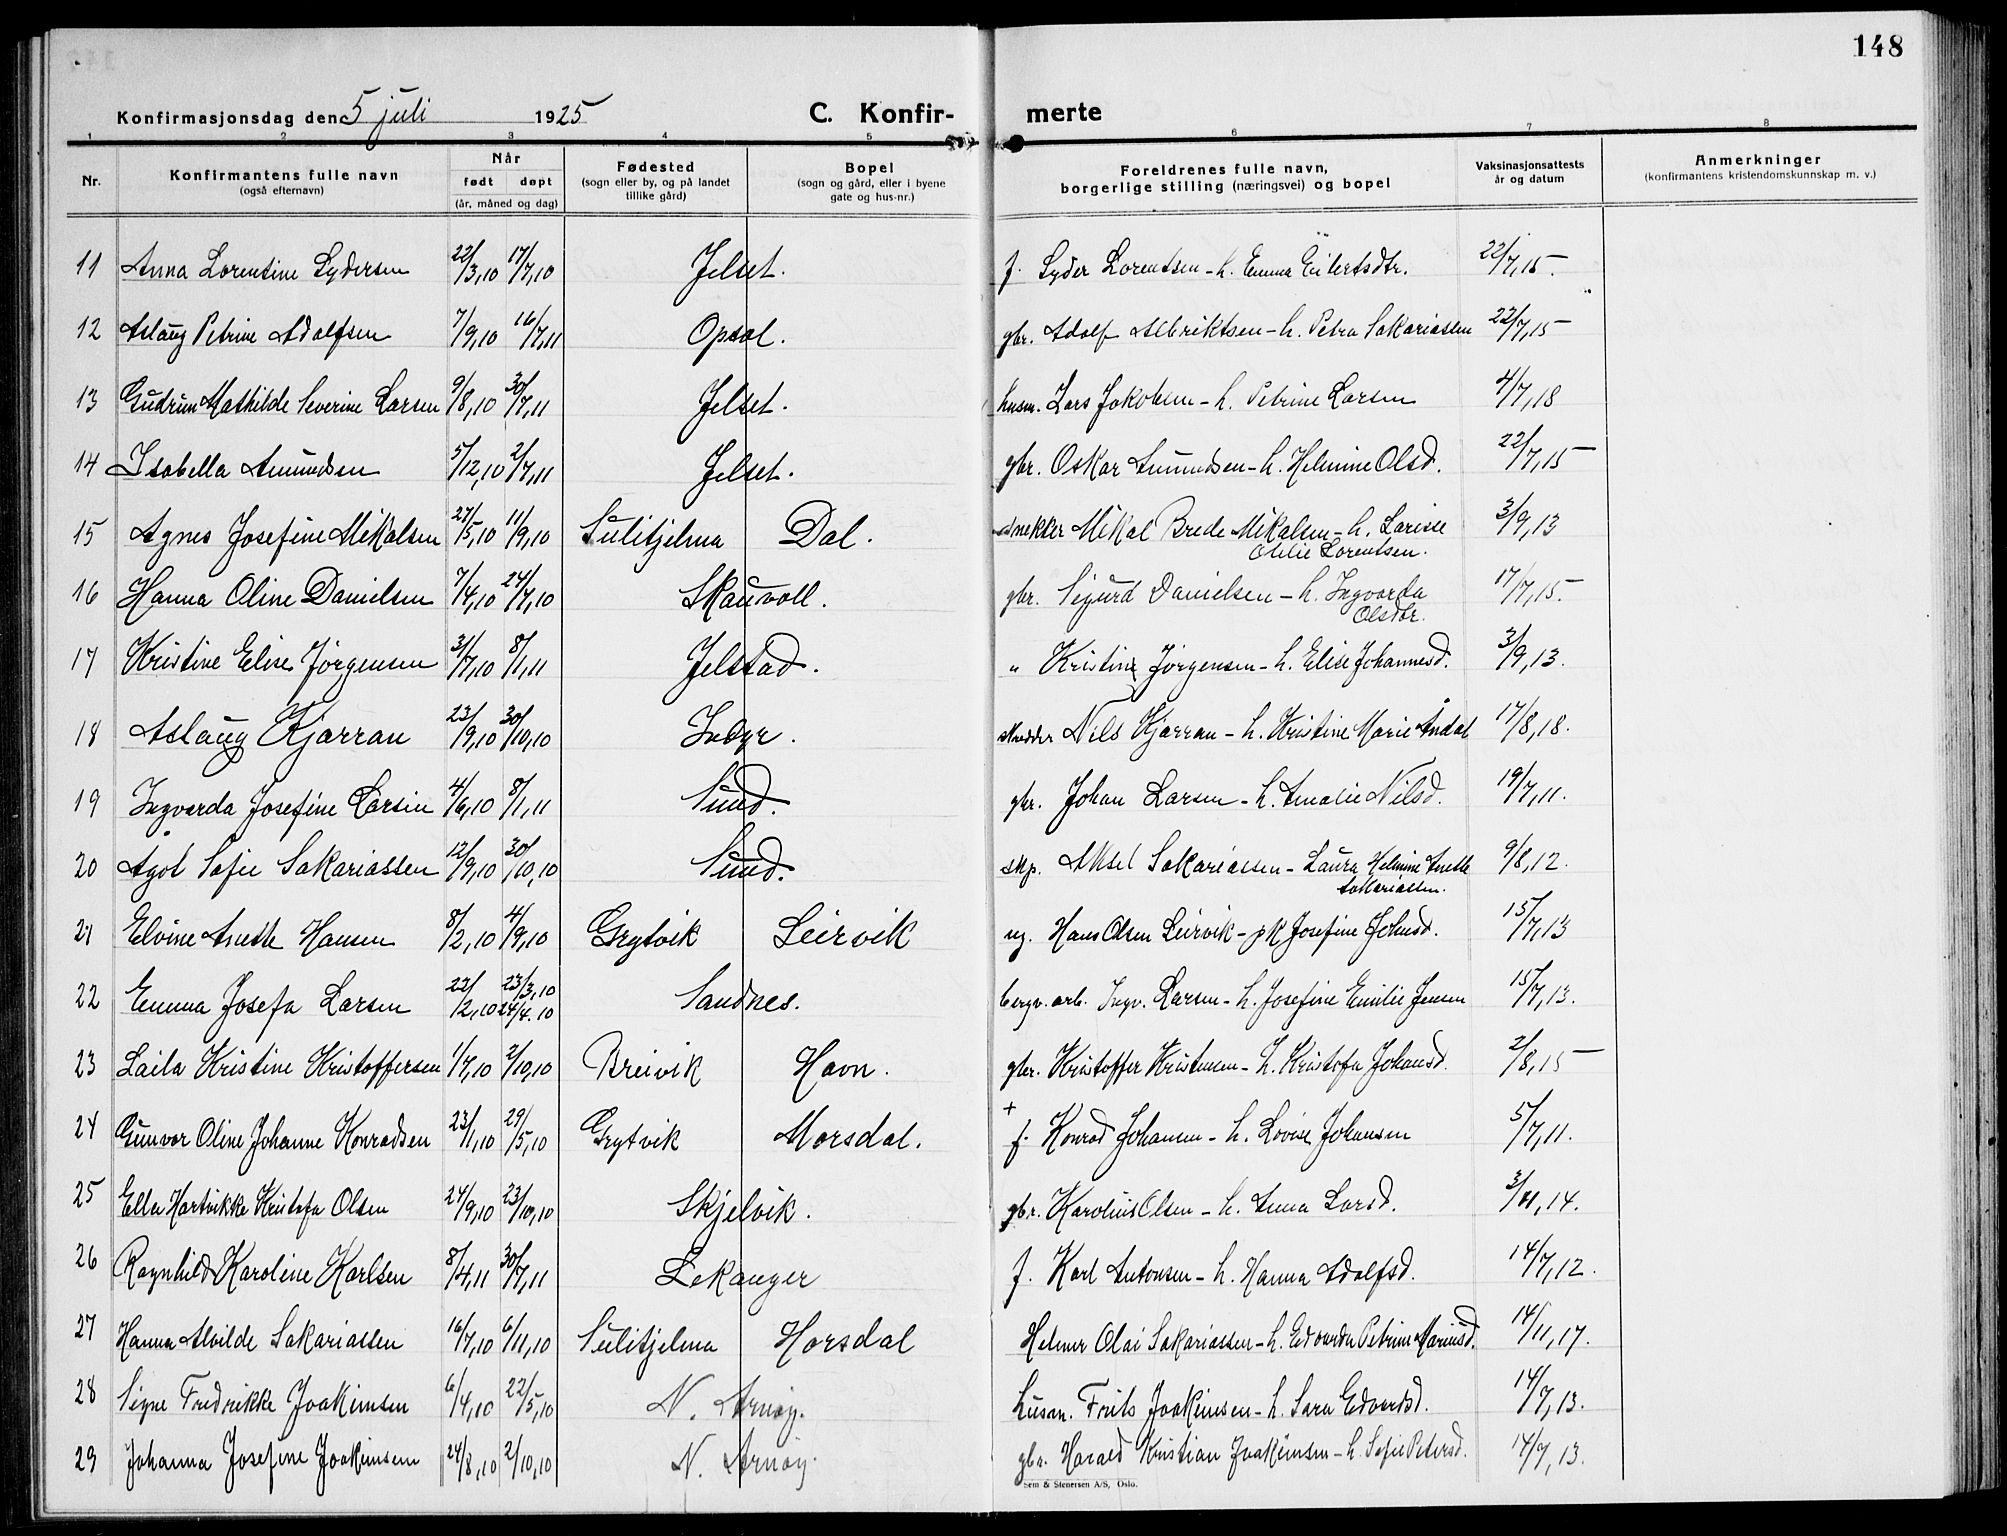 148
Konfirmasjonsdag den 5 juli 1925 C. Konfir- merte
1 2 3 4 5 6 7 8
Nr. Konfirmantens fulle navn (også efternavn) Når født døpt (år, måned og dag) Fødested (sogn eller by, og på landet tillike gård) Bopel (sogn og gård, eller i byene gate og hus-nr.) Foreldrenes fulle navn, borgerlige stilling (næringsvei) og bopel Vaksinasjonsattests år og datum Anmerkninger (konfirmantens kristendomskunnskap m. v.)
11 Anna Lorentine Lydersen 22/3,10 17/7,10 Jelset. f. Lyder Lorentsen - h. Emma Eilertsdtr. 22/7,15.
12 Aslaug Petrine Adolfsen 7/9,10 16/7,11 Opsal. gbr. Adolf Albriktsen - h. Petra Sakariassen 22/7,15
13 Gudrun Mathilde Severine Larsen 9/8,10 30/7,11 Jelset. husm. Lars Jakobsen - h. Petrine Larsen 4/7,18
14 Isabella Amundsen 5/12,10 2/7,11 Jelset. gbr. Oskar Amundsen - h. Helmine Olsd. 22/7,15
15 Agnes Josefine Mikalsen 27/5,10 11/9,10 Sulitjelma Dal. snekker Mikal Brede Mikalsen - h. Larise
Otelie Lorentsen. 3/9,13
16 Hanna Oline Danielsen 7/4,10 24/7,10 Skauvoll. gbr. Sigurd Danielsen - h. Ingvarda
Olsdtr. 17/7,15.
17 Kristine Elise Jørgensen 31/7,10 8/1,11 Jelstad. " Kristine Jørgensen - h. Elise Johannesd. 3/9,13.
18 Aslaug Kjærran 23/9,10 30/10,10 Indyr. skredder Nils Kjærran - h. Kristine Marie Åndal 17/8,18.
19 Ingvarda Josefine Larsen 4/6,10 8/1,11 Sund. gbr. Johan Larsen - h. Amalie Nilsd. 19/7,11.
20 Ågot Sofie Sakariassen 12/9,10 30/10,10 Sund. skp. Aksel Sakariassen - Laura Helmine Anette
Sakariassen. 9/8,12.
21 Elvine Anette Hansen 8/2,10 4/9,10 Grytvik Leirvik ug. Hans Olsen Leirvik - pk Josefine Johnsd. 15/7,13
22 Emma Josefa Larsen 22/2,10 23/3,10 24/4.10 Sandnes. bergv. arb. Ingv. Larsen - h. Josefine Emilie Jensen 15/7,13.
23 Laila Kristine Kristoffersen 1/7,10 2/10,10 Breivik Havn. gbr. Kristoffer Kristensen - h. Kristofa Johansd. 2/8,15
24 Gunvor Oline Johanne Konradsen 23/1,10 29/5,10 Grytvik Morsdal. + f. Konrad Johansen - h. Lovise Johansen 5/7,11.
25 Ella Hartvikke Kristofa Olsen 24/9,10 23/10,10 Skjelvik. gbr. Karolius Olsen - h. Anna Larsd. 3/11,14.
26 Ragnhild Karoline Karlsen 8/4,11 30/7,11 Lekanger f. Karl Antonsen - h. Hanna Adolfsd. 14/7,12.
27 Hanna Alvilde Sakariassen 16/7,10 6/11,10 Sulitjelma Horsdal Helmer Olai Sakariassen - h. Edvarda Petrine Mariusd. 14/11,17.
28 Signe Fredrikke Joakimsen 6/4,10 22/5,10 N. Arnøy. husm. Frits Joakimsen - h. Sara Edvardsd. 14/7,13.
29 Johanna Josefine Joakimsen 24/8,10 2/10,10 N. Arnøy. gbr. Harald Kristian Joakimsen - h. Sofie Petersd. 14/7,13.
Sem & Stenersen A/S, Oslo.